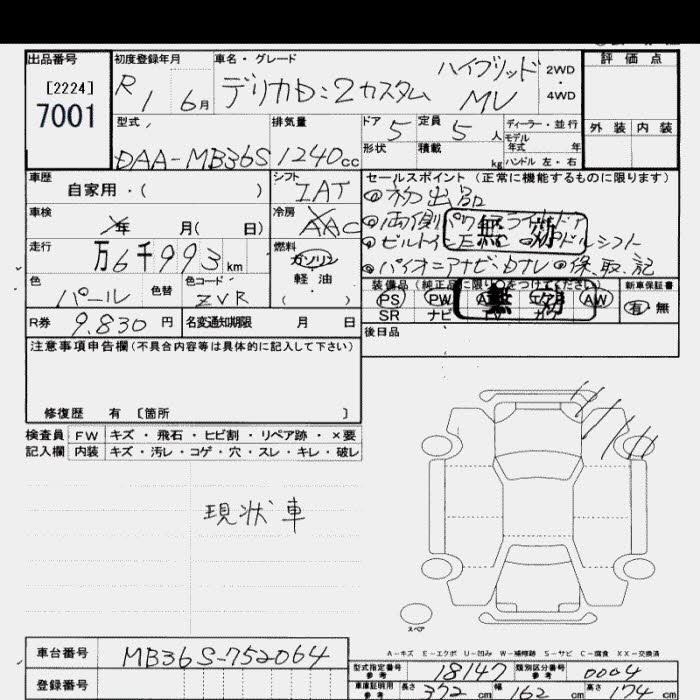 出品番号
[2224]
7001
初度登録年月
R 1 6月
車名・グレード
デリカD:2カスタム ハイブリッド MV
2WD
・
4WD
評価点
外装 内装
型式
DAA-MB36S
排気量
1240cc
ドア 5
定員 5人
形状
積載 kg
ディーラー・並行
モデル年式 年
ハンドル 左・右
車歴
自家用・( )
シフト
IAT
車検
年 月( 日)
冷房
AAC
走行
万6千993km
燃料
ガソリン
軽油
( )
色
パール
色替
色コード
ZVR
R券 9,830円
名変通知期限 月 日
セールスポイント(正常に機能するものに限ります)
◎初出品
◎両側パワースライドドア
◎パドルシフト
◎パイオニアナビ
◎保、取、記
無効
装備品(純正品に限り○をつけてください)
PS PW AW
SR ナビ TV カワ
無効
新車保証書
有・無
後日品
注意事項申告欄(不具合内容等は具体的に記入して下さい)
修復歴 有 [箇所 ]
検査員 FW キズ・飛石・ヒビ割・リペア跡・×要
記入欄 内装 キズ・汚レ・コゲ・穴・スレ・キレ・破レ
現状車
スペア
A-キズ E-エクボ U-凹み W-補修跡 S-サビ C-腐食 XX-交換済
車台番号 MB36S-752064
登録番号
型式指定番号 参考 18147
類別区分番号 参考 0004
車庫証明用 参考 長さ 372cm 幅 162cm 高さ 174cm